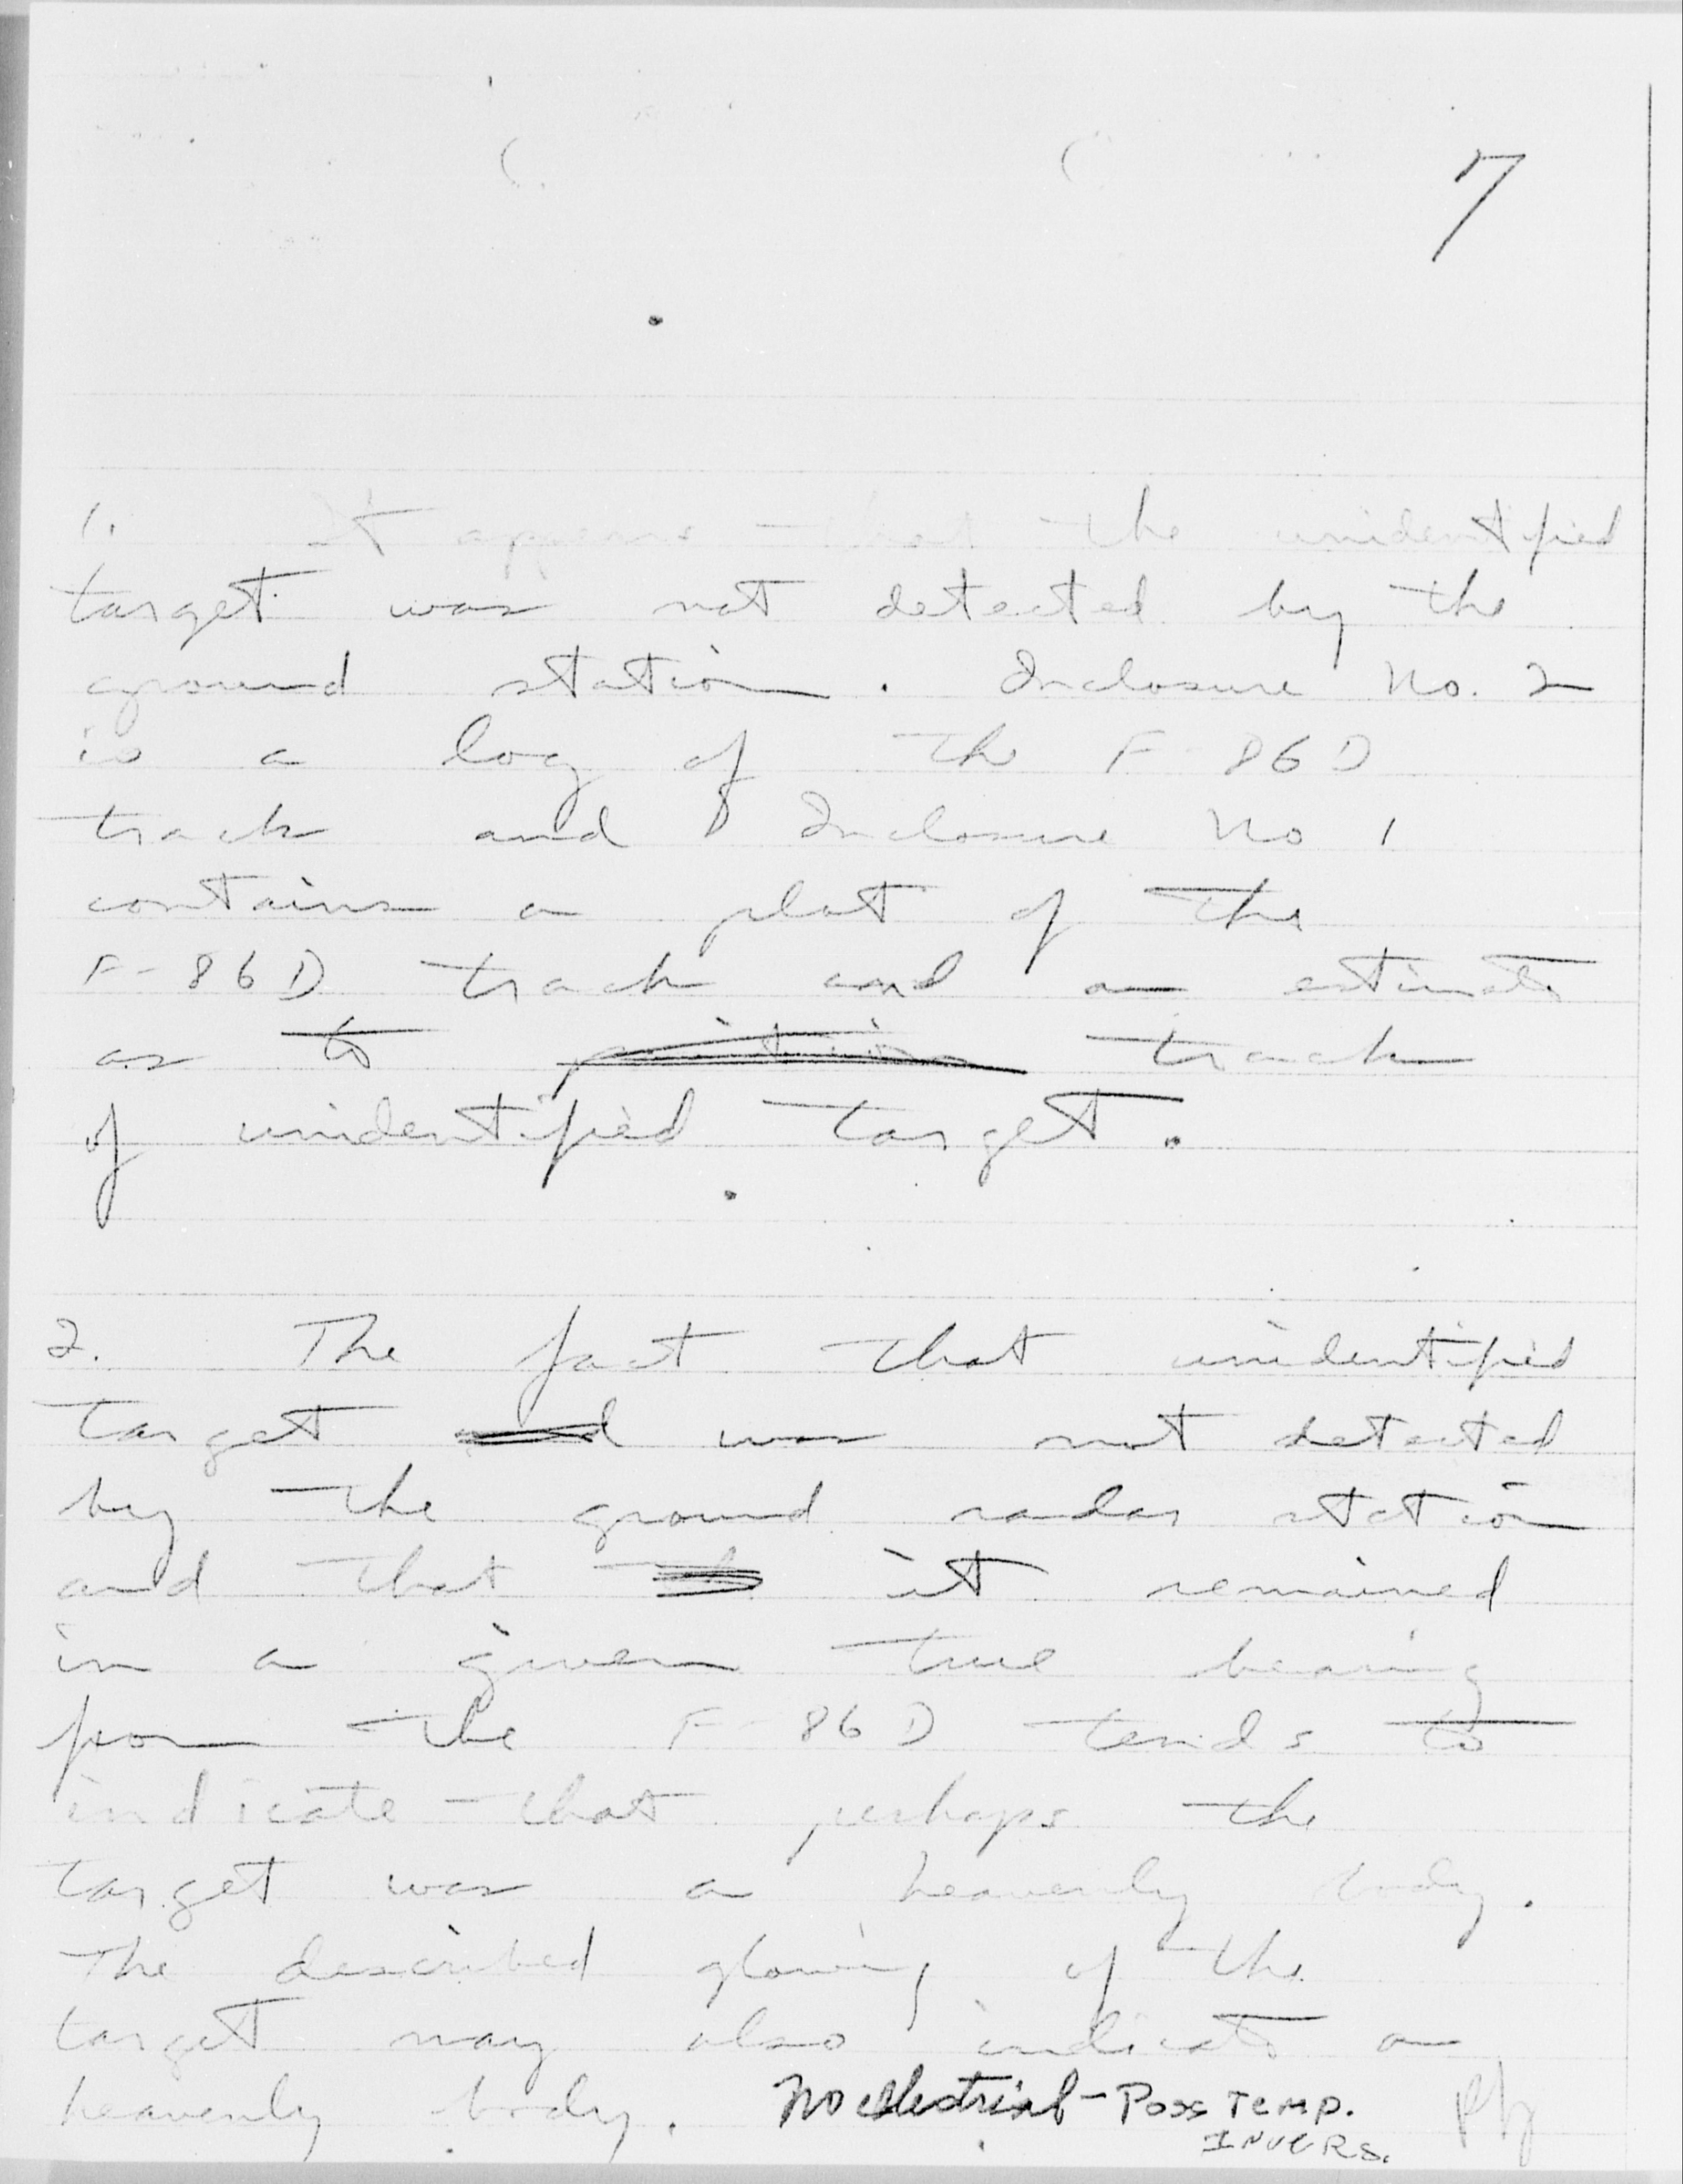 7
1. It appears that the unidentified
target was not detected by the
ground station. Inclosure No. 2
is a log of the F-86D
track and Inclosure No 1
contains a plot of the
F-86D track and an estimate
as to position track
of unidentified target.
2. The fact that unidentified
target and was not detected
by the ground radar station
and that it remained
in a given true bearing
from the F-86D tends to
indicate that perhaps the
target was a heavenly body.
The described glowing of the
target may also indicate a
heavenly body. No - Poss TEMP.
INVERS.